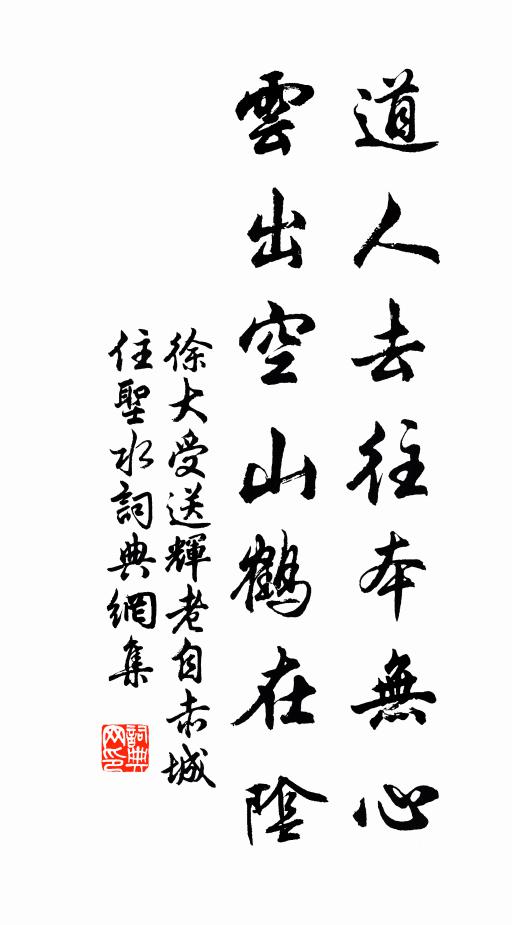 道人去往本無心
雲出空山鶴在陰
徐大受送輝老自赤城
住聖水詞典網集
詞典
网印